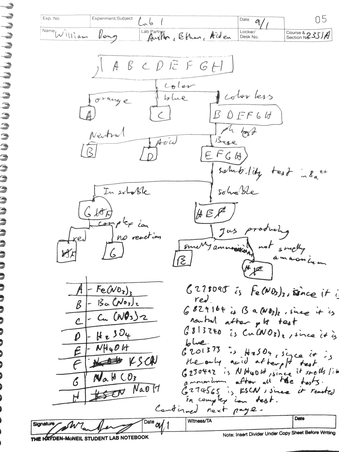 Exp. No. Experiment/Subject Lab 1 Date 9/1 05
Name William Dong Lab Partner Austin, Ethan, Aiden Locker/Desk No. Course & Section No. 2351A
A B C D E F G H
color
orange blue colorless
A C B D E F G H
pH test
Neutral Acid Base
B D E F G H
solubility test in Ba++
Insoluble soluble
G H E F
complex ion Gas producing
red no reaction smelly ammonium not smelly ammonium
G E
A - Fe(NO3)3
B - Ba(NO3)2
C - Cu(NO3)2
D - H2SO4
E - NH4OH
F - KSCN
G NaHCO3
H - NaOH
is Fe(NO3)3, since it is
red.
is Ba(NO3)2, since it is
neutral after pH test
is Cu(NO3)2, since it is
blue.
G201373 is H2SO4, since it is
the only acid after pH test
is NH4OH, since it smells like
ammonium after all the tests.
is KSCN, since it reacted
in complex ion test.
Continued next page.
Signature Date 9/1 Witness/TA Date
THE HAYDEN-McNEIL STUDENT LAB NOTEBOOK Note: Insert Divider Under Copy Sheet Before Writing